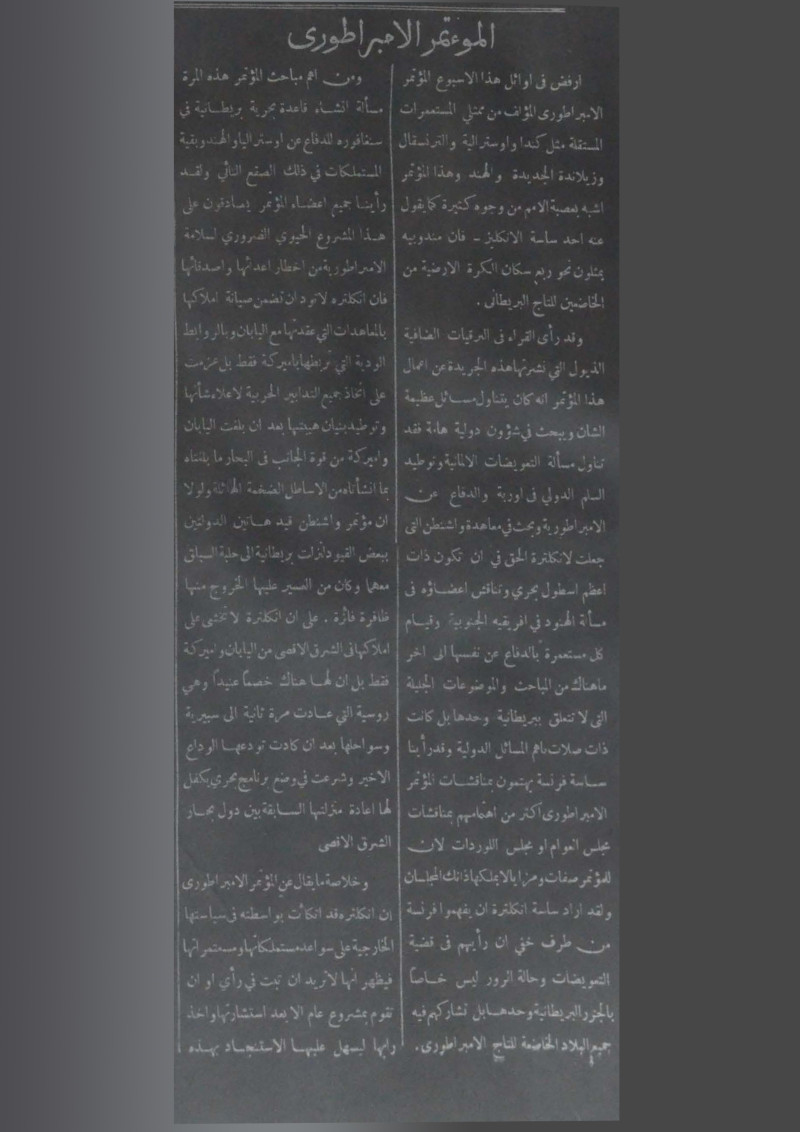 الموءتمر الامبراطورى
ارفض فى اوائل هذا الاسبوع المؤتمر
الامبراطورى المؤلف من ممثلي المستعمرات
المستقلة مثل كندا واوسترالية والترنسفال
وزيلاندة الجديدة والهند وهذا المؤتمر
اشبه بعصبة الامم من وجوه كثيرة كما يقول
عنه احد ساسة الانكليز ـ فان مندوبيه
يمثلون نحو ربع سكان الكرة الارضية من
الخاضعين للتاج البريطانى .
وقد رأى القراء فى البرقيات الضافية
الذيول التي نشرتها هذه الجريدة عن اعمال
هذا المؤتمر انه كان يتناول مسائل عظيمة
الشان ويبحث في شؤون دولية هامة فقد
تناول مسألة التعويضات الالمانية وتوطيد
السلم الدولي فى اوربة والدفاع عن
الامبراطورية وبحث في معاهدة واشنطن التى
جعلت لانكلترة الحق في ان تكون ذات
اعظم اسطول بحري وتناقش اعضاؤه فى
مسألة الهنود في افريقيه الجنوبية وقيام
كل مستعمرة بالدفاع عن نفسها الى اخر
ماهناك من المباحث والموضوعات الجليلة
التى لا تتعلق ببريطانية وحدها بل كانت
ذات صلات باهم المسائل الدولية وقد رأينا
ساسة فرنسة يهتمون بمناقشات المؤتمر
الامبراطورى اكثر من اهتمامهم بمناقشات
مجلس العوام او مجلس اللوردات لان
للمؤتمر صفات ومزايا لا يملكها ذانك المجلسان
ولقد اراد ساسة انكلترة ان يفهموا فرنسة
من طرف خفي ان رأيهم فى قضية
التعويضات وحالة الرور ليس خاصاً
بالجزر البريطانية وحدها بل تشاركهم فيه
جميع البلاد الخاضعة للتاج الامبراطورى .
ومن اهم مباحث المؤتمر هذه المرة
مسألة انشاء قاعدة بحرية بريطانية في
سنغافوره للدفاع عن اوستراليا والهند وبقية
المستملكات في ذلك الصقع النائي ولقد
رأينا جميع اعضاء المؤتمر يصادقون على
هذا المشروع الحيوي الضروري لسلامة
الامبراطورية من اخطار اعدائها واصدقائها
فان انكلتره لا تود ان تضمن صيانة املاكها
بالمعاهدات التي عقدتها مع اليابان وبالروابط
الودية التي تربطها باميركة فقط بل عزمت
على اتخاذ جميع التدابير الحربية لاعلاء شأنها
وتوطيد بنيان هيبتها بعد ان بلغت اليابان
واميركة من قوة الجانب فى البحار ما بلغتاه
بما انشأتاه من الاساطل الضخمة الهائلة ولولا
ان مؤتمر واشنطن قيد هاتين الدولتين
ببعض القيود لنزلت بريطانية الى حلبة السباق
معهما وكان من العسير عليها الخروج منها
ظافرة فائزة . على ان انكلترة لا تخشى على
املاكها فى الشرق الاقصى من اليابان واميركة
فقط بل ان لها هناك خصماً عنيداً وهي
روسية التي عادت مرة ثانية الى سيبرية
وسواحلها بعد ان كادت تودعها الوداع
الاخير وشرعت في وضع برنامج بحري يكفل
لها اعادة منزلتها السابقة بين دول بحار
الشرق الاقصى
وخلاصة مايقال عن المؤتمر الامبراطورى
ان انكلتره قد اتكأت بواسطته فى سياستها
الخارجية على سواعد مستملكاتها ومستعمراتها
فيظهر انها لا تريد ان تبت في رأي او ان
تقوم بمشروع عام الا بعد استشارتها واخذ
رايها ليسهل عليها الاستنجاد بهذه